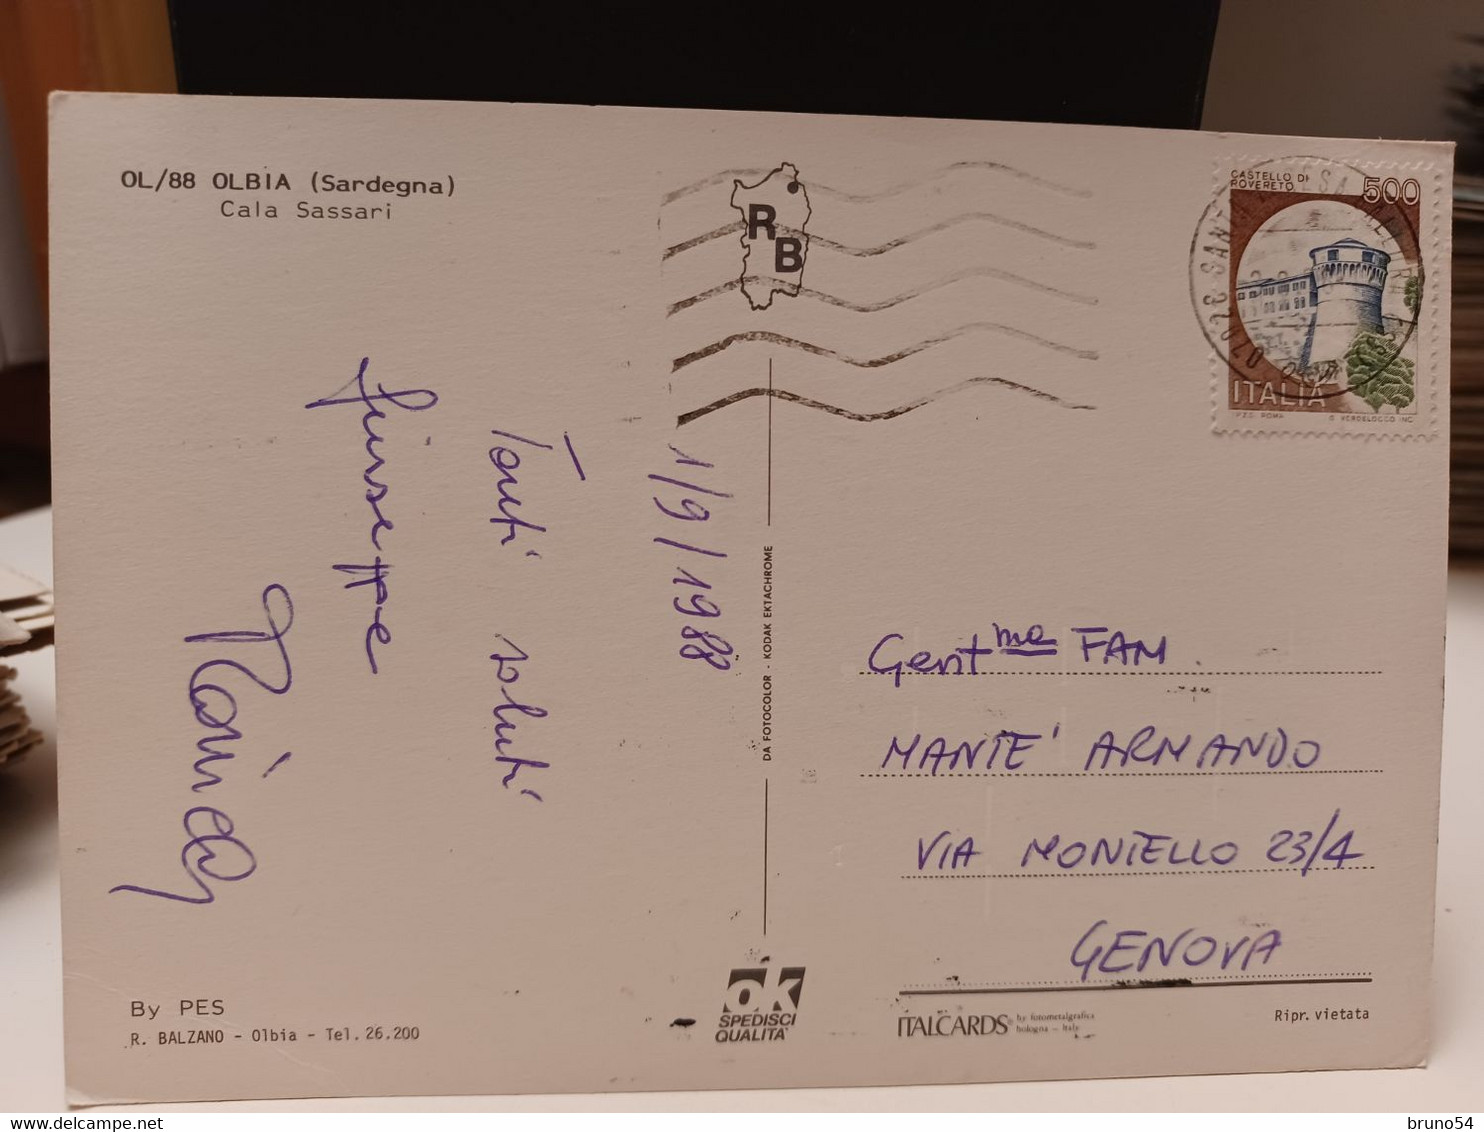 OL/88 OLBIA (Sardegna)
Cala Sassari
R B
CASTELLO DI
ROVERETO
500
ITALIA
I.P.Z.S. ROMA
G. VERDELOCCO INC.
07028 SANTA TERESA GALLURA
1/9/1988
Tanti saluti
Giuseppe
DA FOTOCOLOR - KODAK EKTACHROME
Gent.ma FAM.
MANTE' ARMANDO
VIA MONIELLO 23/4
GENOVA
By PES
R. BALZANO - Olbia - Tel. 26.200
ok
SPEDISCI
QUALITA'
ITALCARDS by fotometalgrafica
bologna - Italy
Ripr. vietata
bruno54